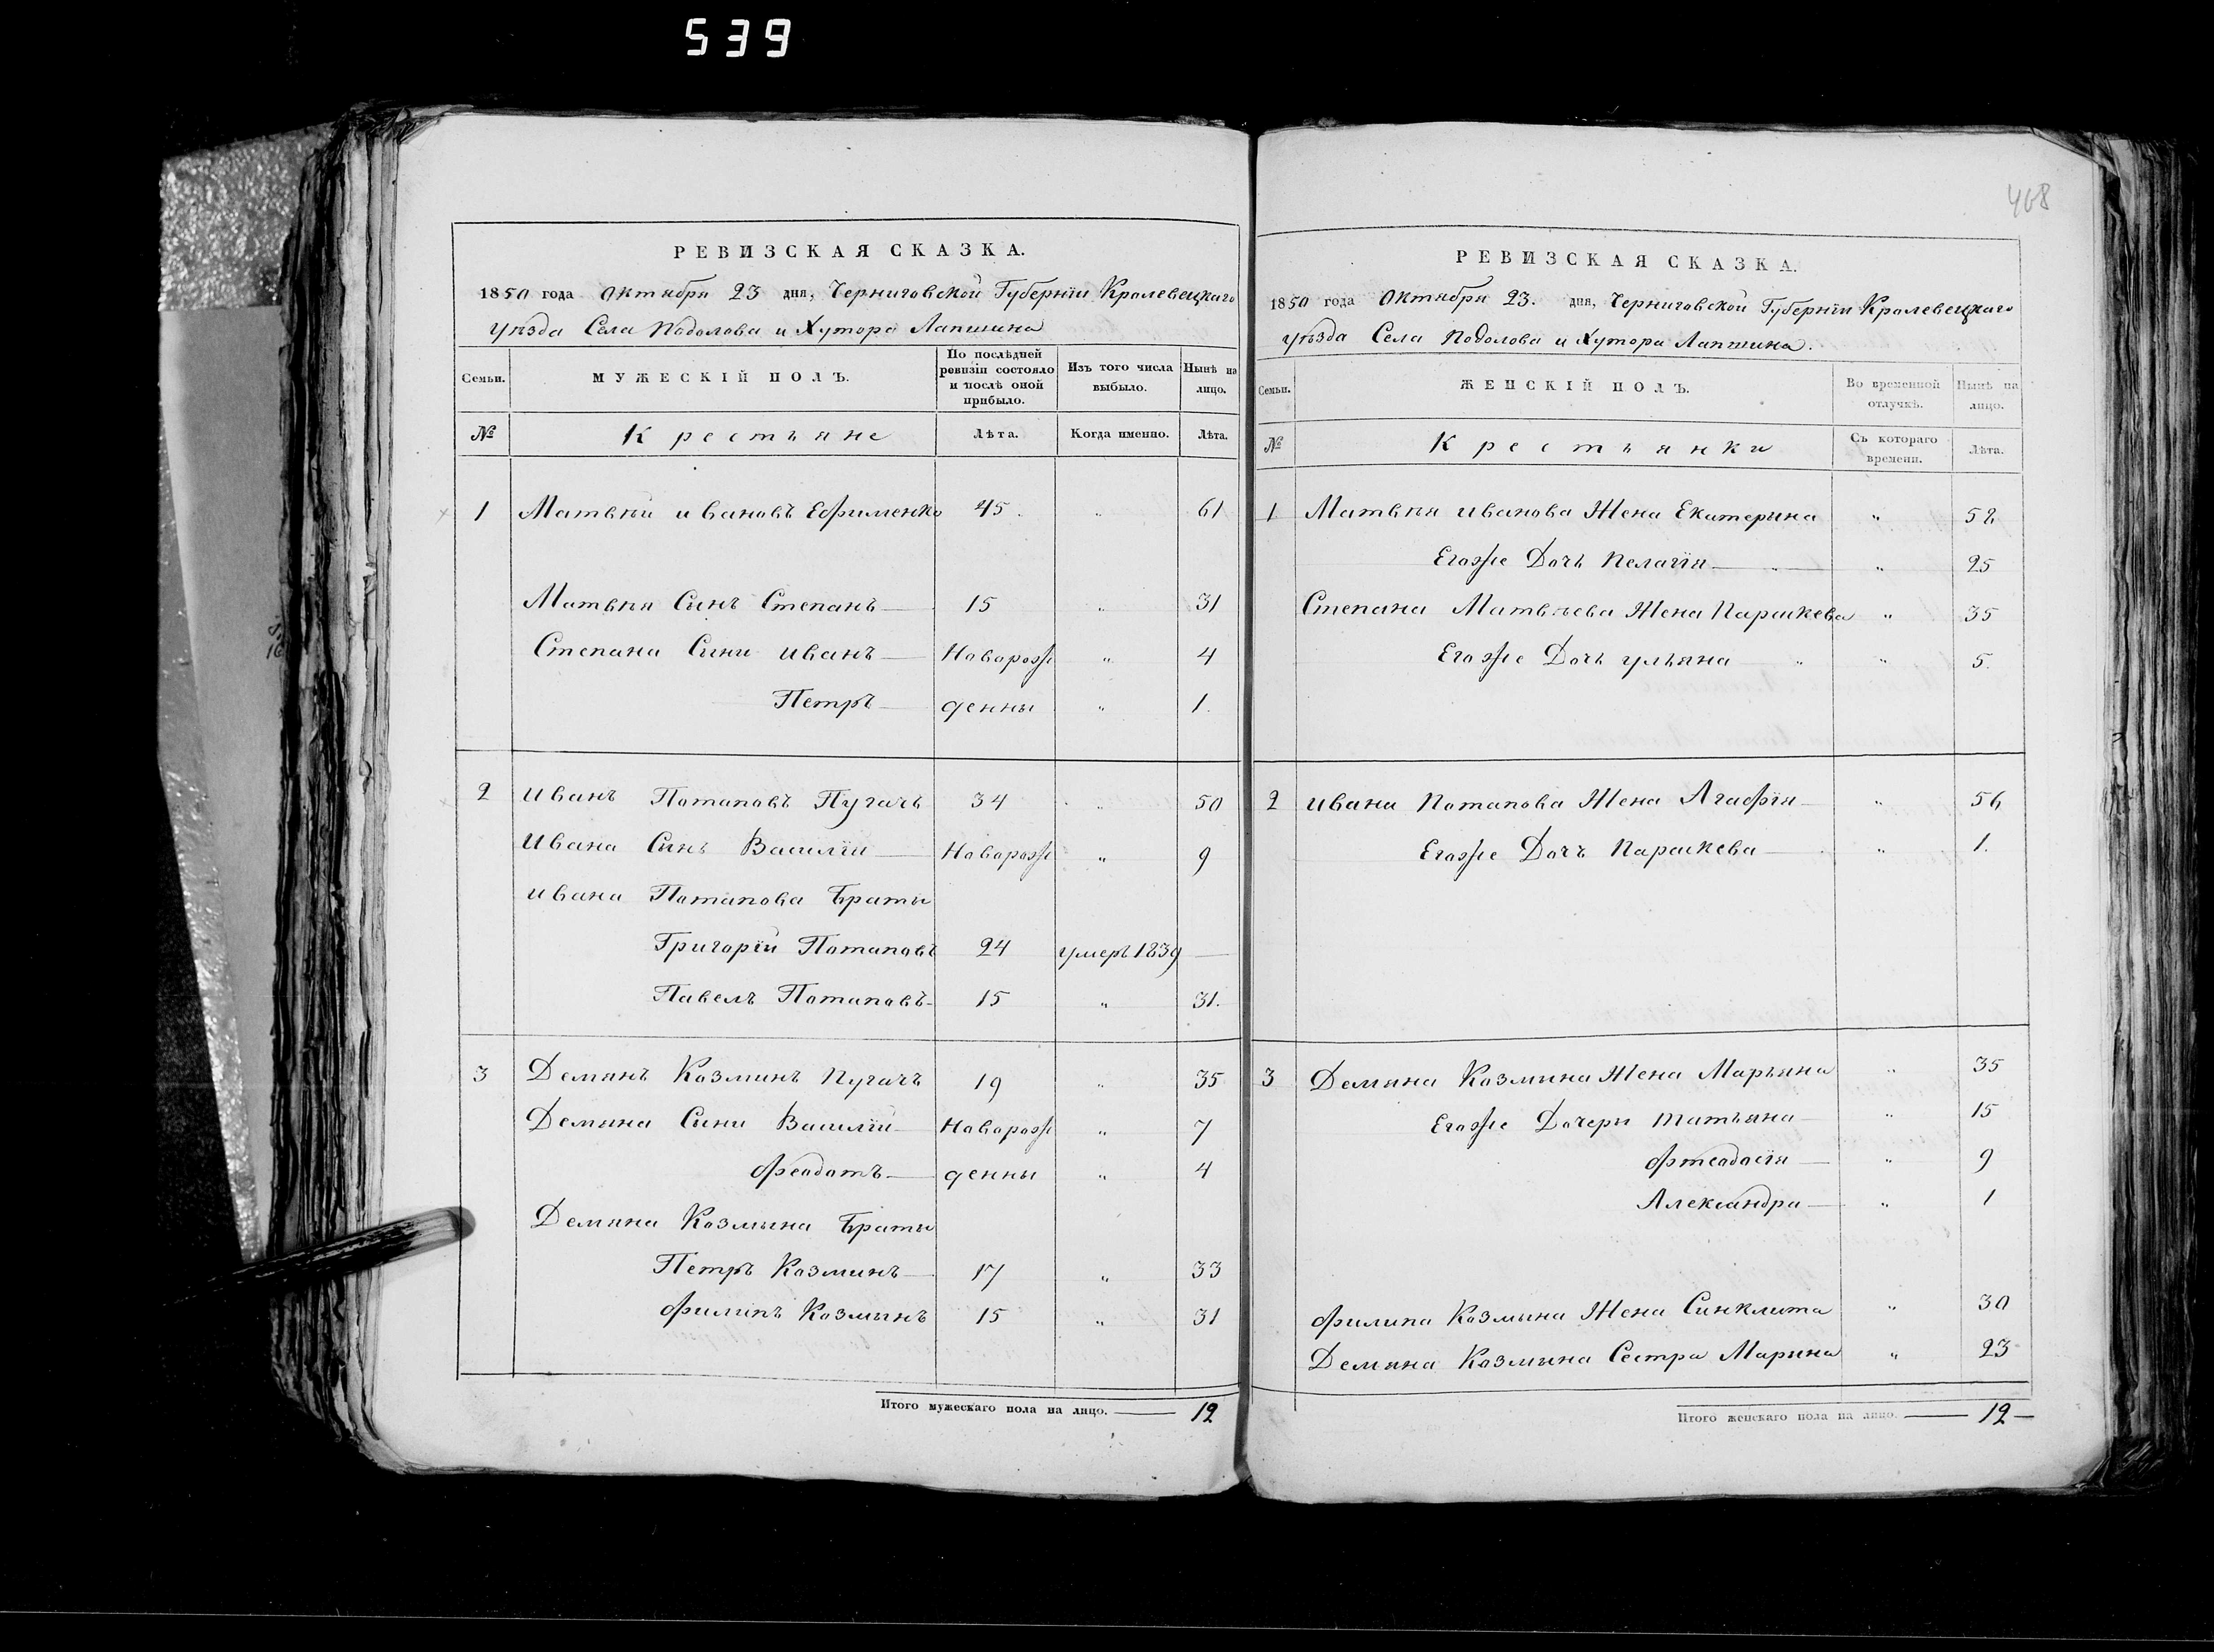 539
468
РЕВИЗСКАЯ СКАЗКА.
1850 года Октября 23 дня, Черниговской Губернїи Кролевецкаго
уѣзда Села Подолова и Хутора Лапшина
Семьи. МУЖЕСКІЙ ПОЛЪ. По послѣдней ревизіи состояло и послѣ оной прибыло. Изъ того числа выбыло. Нынѣ на лицо.
№ Крестьяне Лѣта. Когда именно. Лѣта.
1 Матвѣй Ивановъ Ефименко 45. „ 61
Матвѣя Сынъ Степанъ — 15 „ 31
Степана Сыны Иванъ — Новорож „ 4
Петръ — денны „ 1.
2 Иванъ Потаповъ Пугачъ 34 „ 50
Ивана Сынъ Василїй — Новорож „ 9
Ивана Потапова Браты
Григорїй Потаповъ 24 умеръ 1839 —
Павелъ Потаповъ — 15 „ 31.
3 Демянъ Козминъ Пугачъ 19 „ 35
Демяна Сыны Василїй — Новорож „ 7
Феодотъ — денны „ 4
Демяна Козмына Браты
Петръ Козминъ — 17 „ 33
Филипъ Козмынъ 15 „ 31
Итого мужескаго пола на лицо. — 12
РЕВИЗСКАЯ СКАЗКА.
1850 года Октября 23. дня, Черниговской Губернїи Кролевецкаго
уѣзда Села Подолова и Хутора Лапшина.
Семьи. ЖЕНСКІЙ ПОЛЪ. Во временной отлучкѣ. Нынѣ на лицо.
№ Крестьянки Съ котораго времени. Лѣта.
1 Матвѣя Иванова Жена Екатерина „ 52
Егоже Дочь Пелагїя — „ 25
Степана Матвѣева Жена Параскева „ 35
Егоже Дочь Ульяна „ „ 5.
2 Ивана Потапова Жена Агафїя — „ 56
Егоже Дочъ Параскева — „ 1.
3 Демяна Козмына Жена Марьяна „ 35
Егоже Дочери Татьяна — „ 15
Фтеодосїя — „ 9
Александра — „ 1
Филипа Козмына Жена Синклита „ 30
Демяна Козмына Сестра Марина „ 23
Итого женскаго пола на лицо. — 12 —